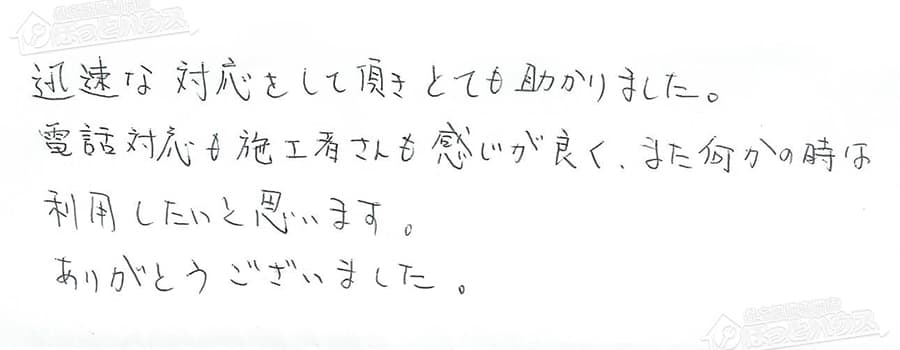 迅速な対応をして頂きとても助かりました。
電話対応も施工者さんも感じが良く、また何かの時は
利用したいと思います。
ありがとうございました。
ほっとハウス
ほっとハウス